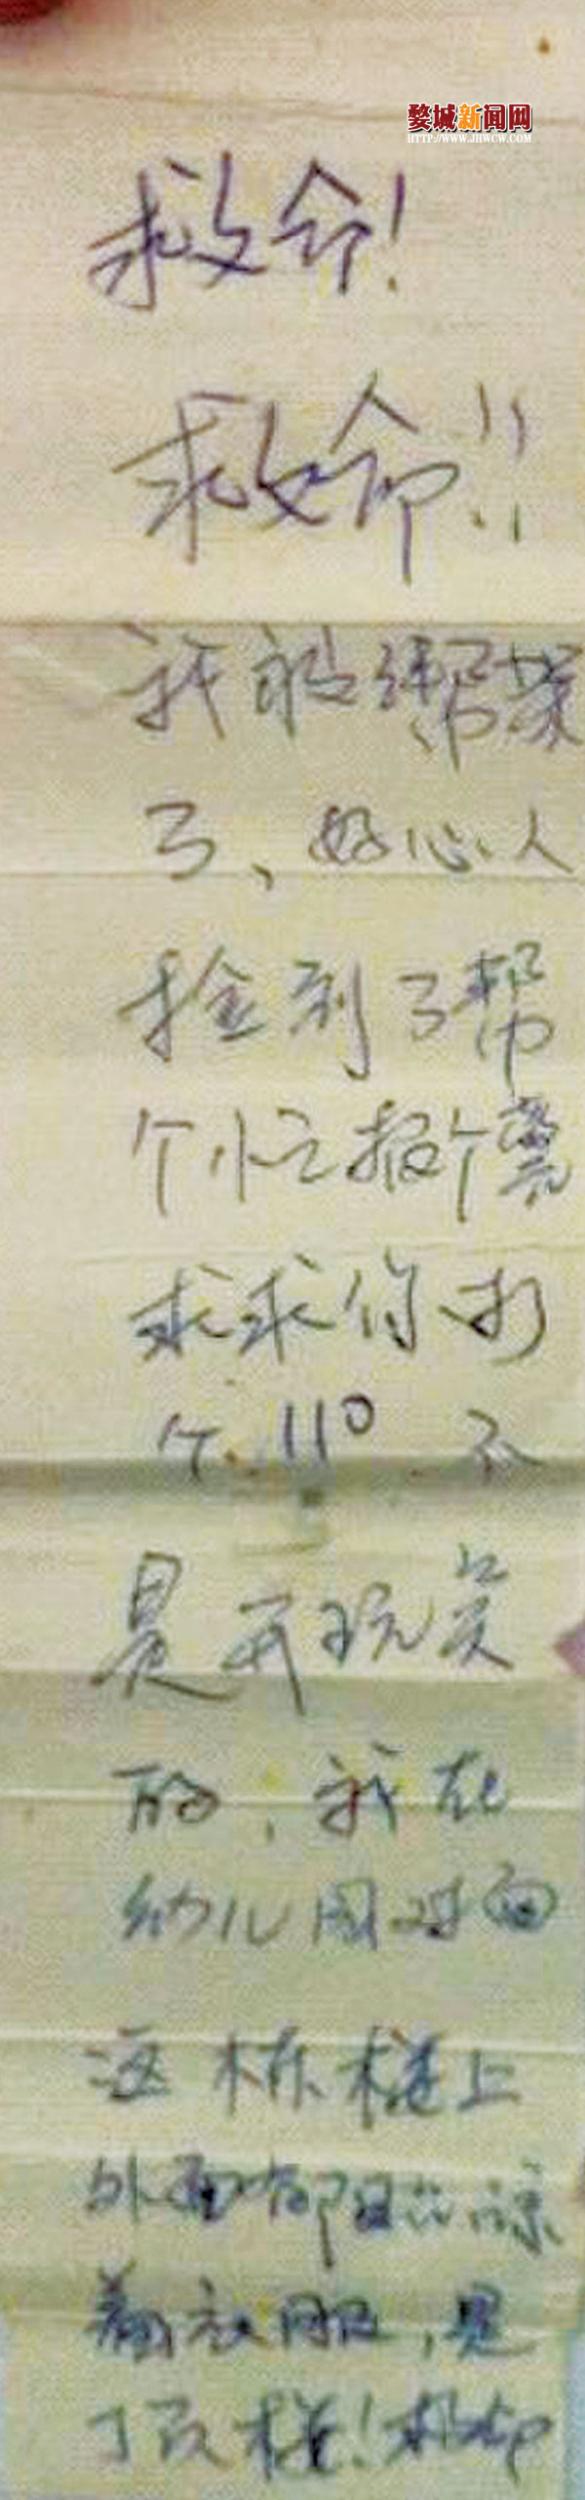 婺城新闻网
HTTP://WWW.JHWCW.COM
救命!
救命!!
我被绑架
了、好心人
捡到了帮
个忙报个警
求求你打
个110 不
是开玩笑
的,我在
幼儿园对面
这栋楼上
外面阳台晾
着衣服,是
顶楼!